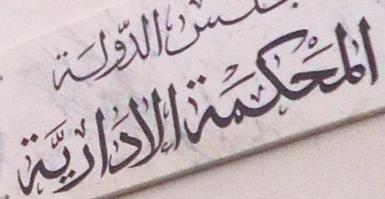 مجلس الدّولة
المَحكمَة الادَاريَّة